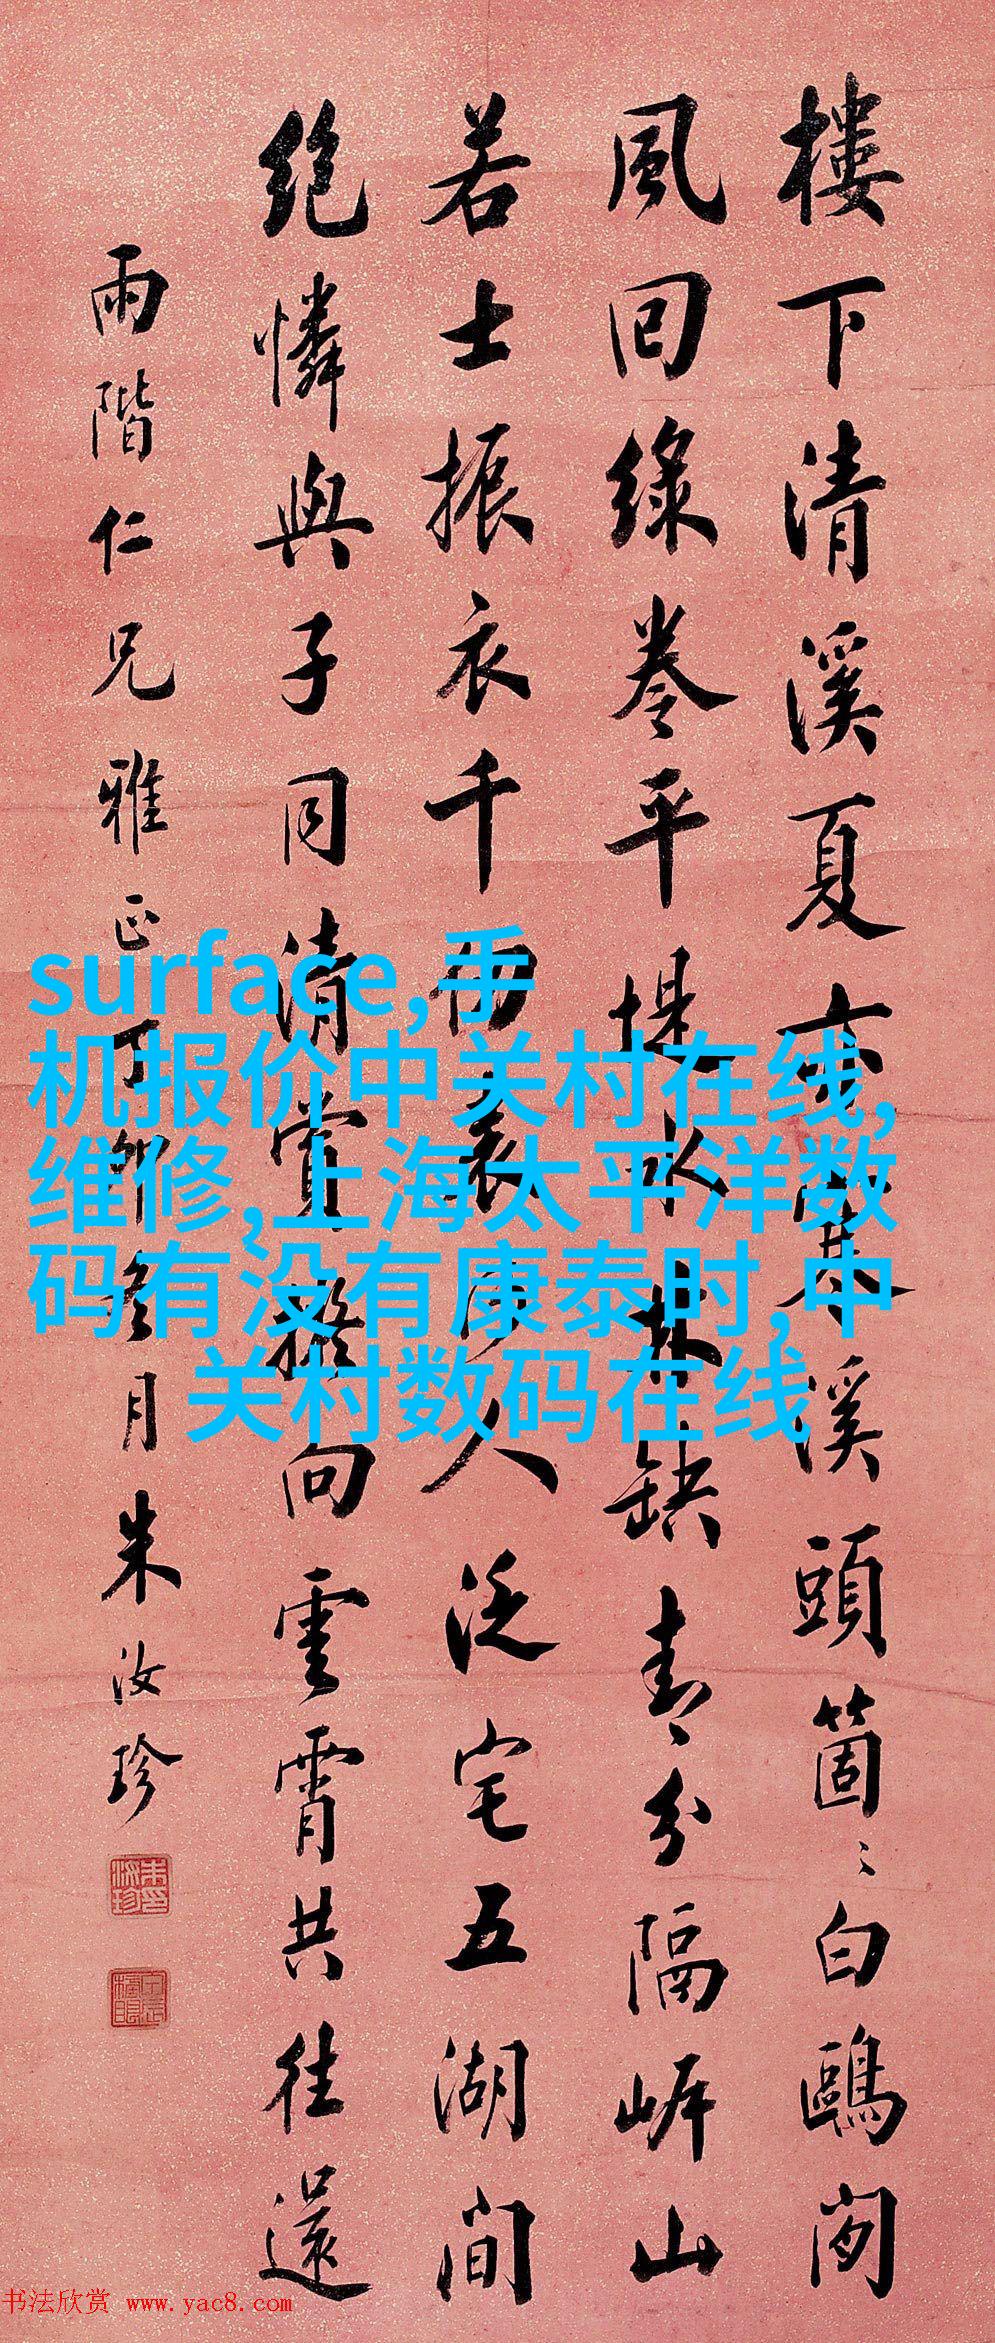 樓下清溪夏亦寒溪頭箇〻白鷗閑
風回綠卷平堤水林缺青〻分隔岸山
若士振衣千仞表何人泛宅五湖間
絕憐與子同清賞擬向雲霄共往還
雨階仁兄雅正丁卯冬月朱汝珍
surface,手
机报价中关村在线,
维修,上海太平洋数
码有没有康泰时,中
关村数码在线
书法欣赏 www.yac8.com